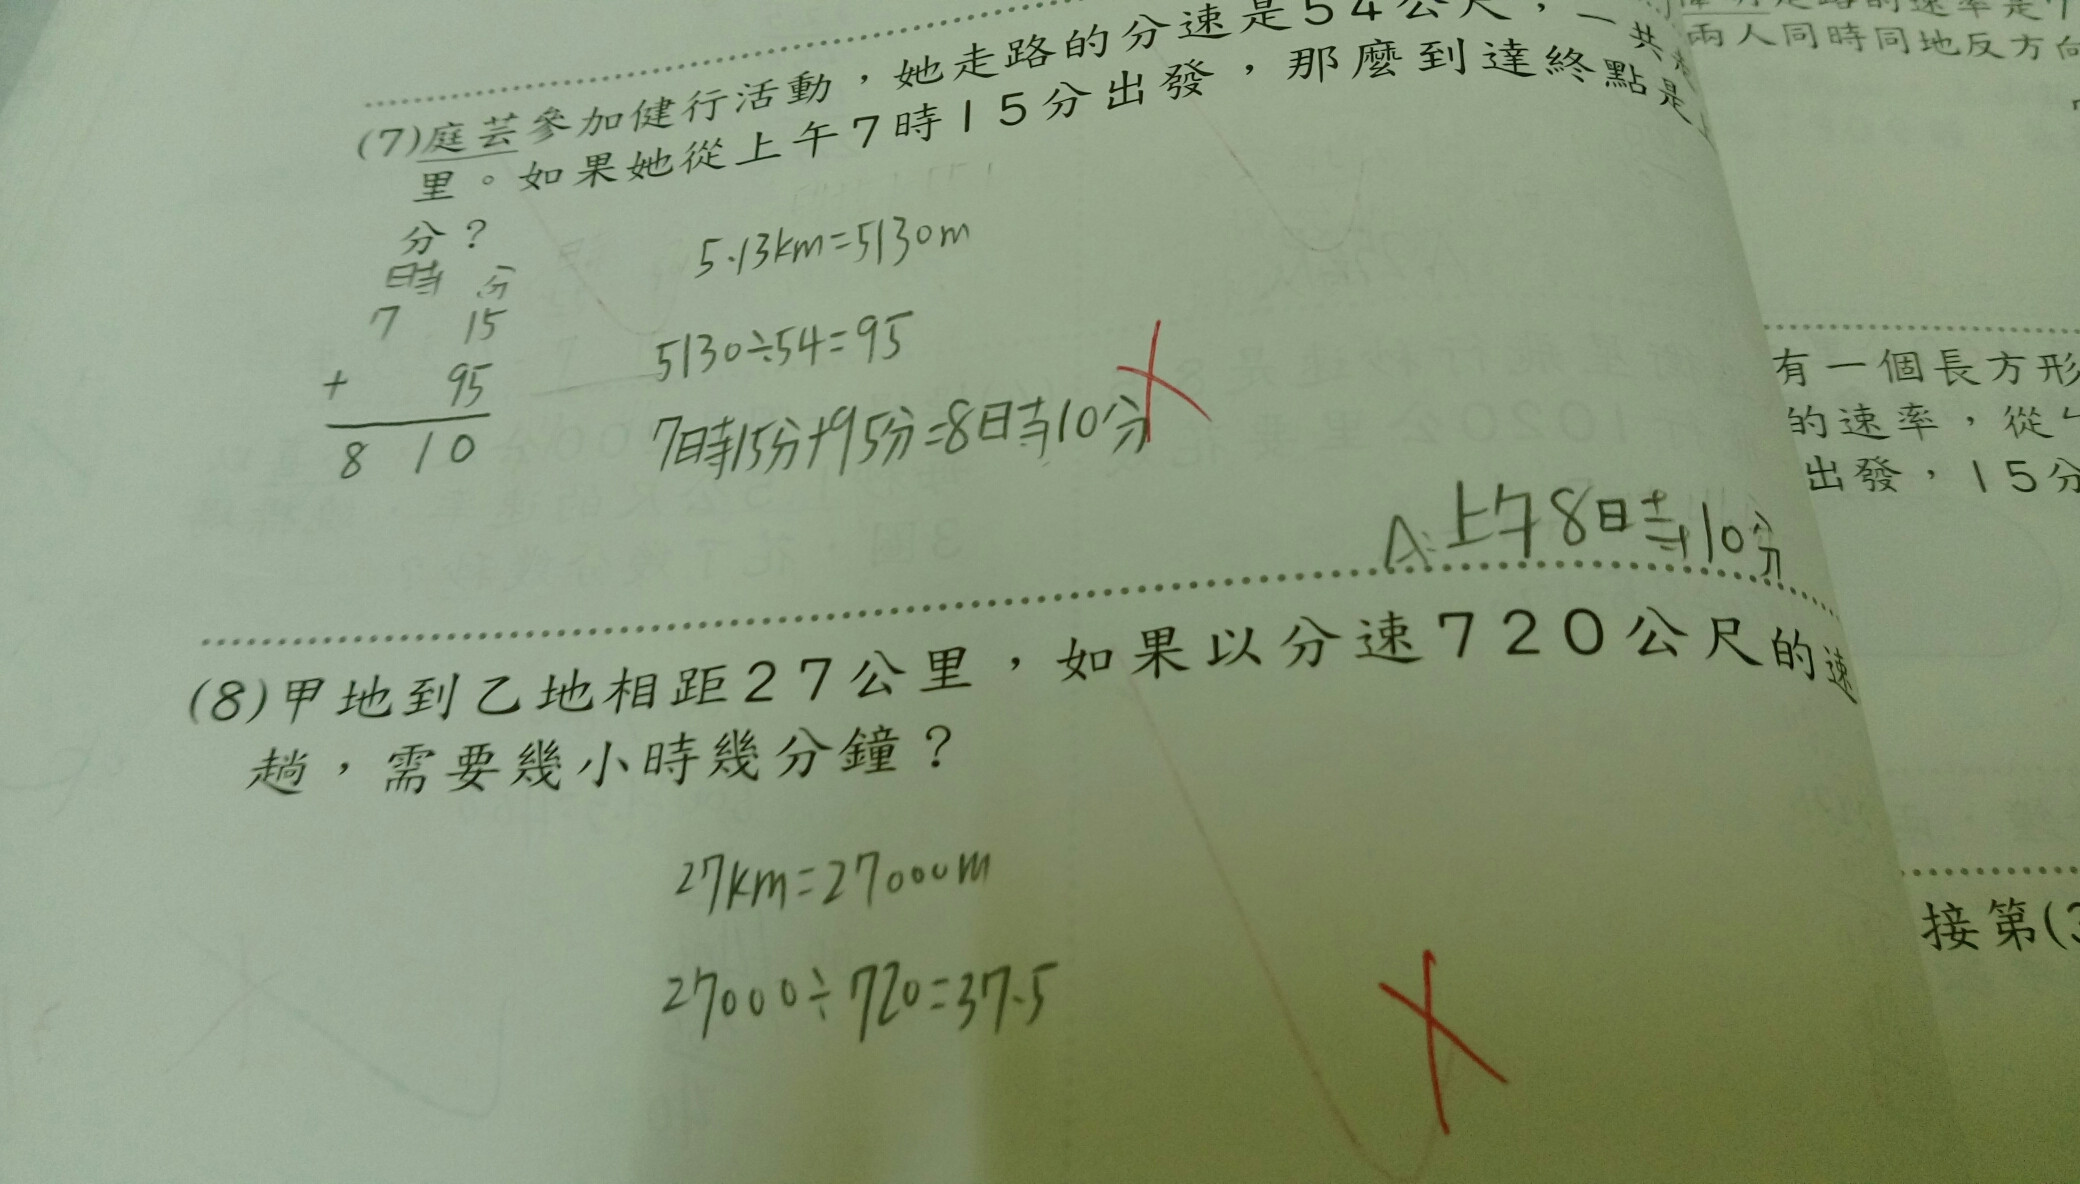 (7)庭芸參加健行活動，她走路的分速是54公尺，一共
里。如果她從上午7時15分出發，那麼到達終點是
分？
時 分
7 15
+ 95
8 10
5.13km=5130m
5130÷54=95
7時15分+95分=8時10分
A:上午8時10分
(8)甲地到乙地相距27公里，如果以分速720公尺的速
趟，需要幾小時幾分鐘？
27km=27000m
27000÷720=37.5
走路的速率是
兩人同時同地反方向
有一個長方形
的速率，從
出發，15分
接第(3